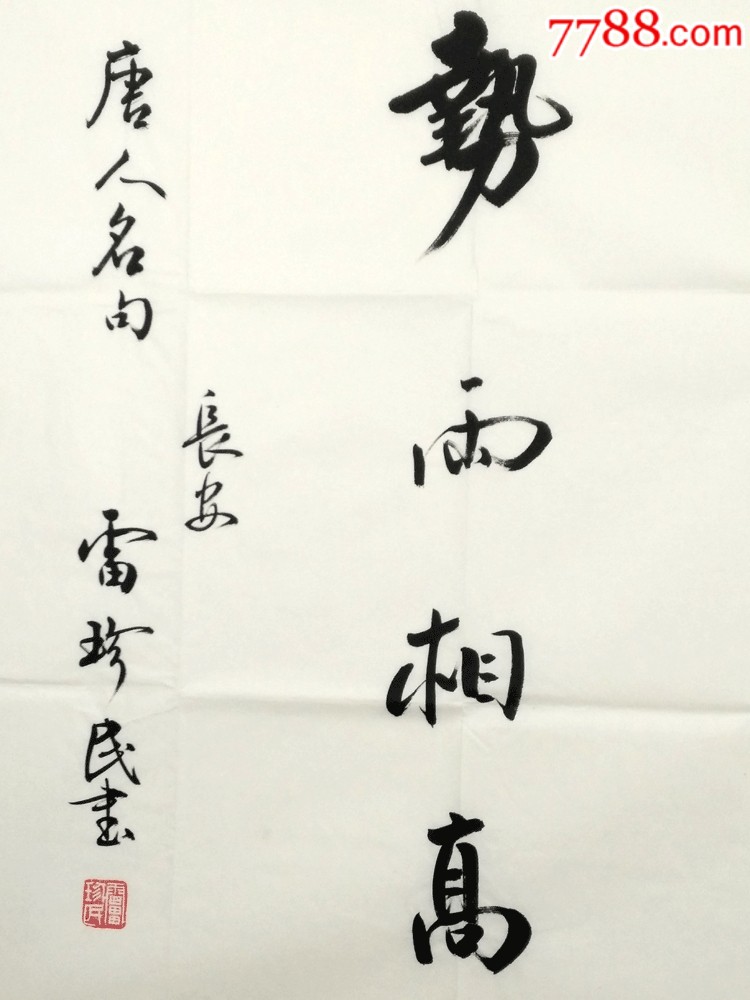 7788.com
勢兩相高
長安
唐人名句
雷珍民書
雷珍民